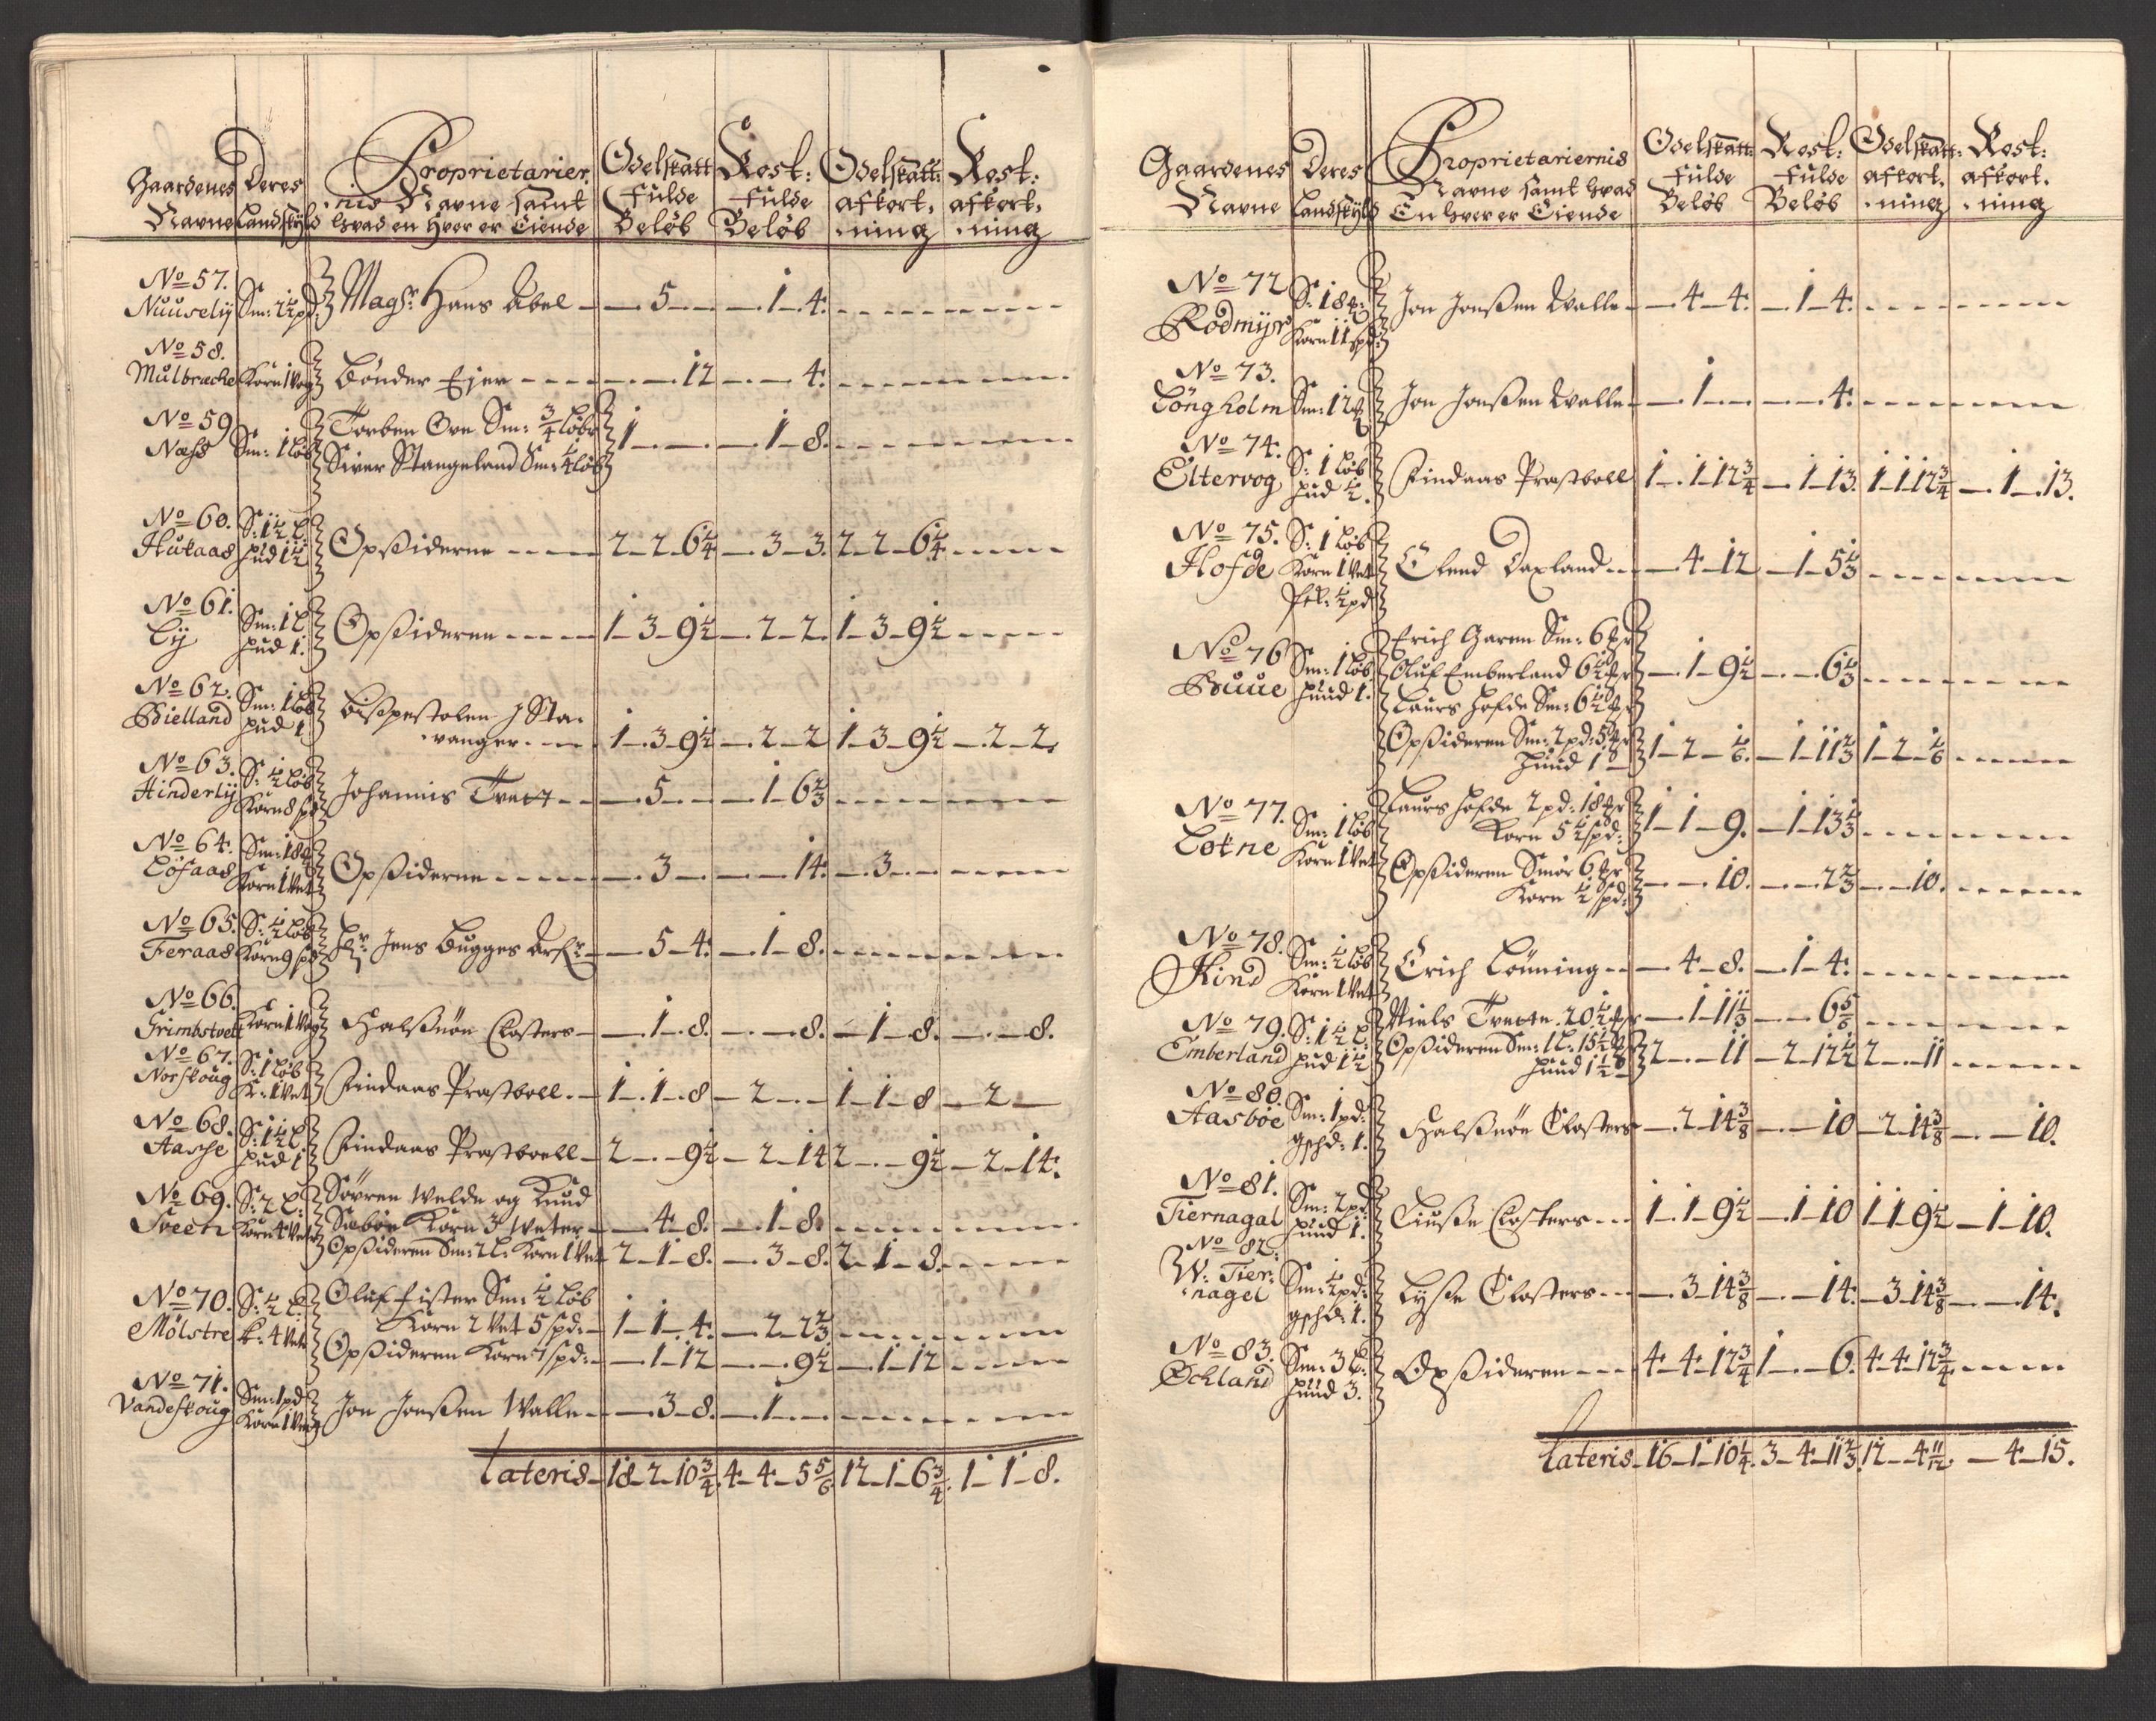 Gaardenes Navne | Deres Landskyld | Proprietarier.nis Navne samt hvad en hver er Eiende | Odelskatt fulde Beløb | Rost: fulde Beløb | Odelskatt: afkort.ning | Rost: afkort.ning
No 57. Nuusely | Sm: 2½ pd: | Magr: Hans Abel | 5 | 1-4.
No 58. Mulbræche | Korn 1 Vog | Bønder Ejer | 12 | 4.
No 59 Næss | Sm: 1 løb | Torben Ove Sm: ¾ løb | 1 | 1-8.
Siver Stangeland Sm: ¼ løb
No 60. Hukaas | S: 1½ l. hud 1½ | Opsiderne | 2-2-6¼ | 3-3. | 2-2-6¼
No 61. Ly | Sm: 1 l hud 1. | Opsideren | 1-3-9½ | 2-2. | 1-3-9½
No 62. Bielland | Sm: 1 løb hud 1. | Bispestolen J Sta.vanger | 1-3-9½ | 2-2 | 1-3-9½ | 2-2.
No 63. Hinderly | S: ½ løb Korn 8 spd | Johannis Tvett | 5 | 1-6⅔
No 64. Løfaas | Sm: 18 Korn 1 Vet | Opsiderne | 3 | 14. | 3
No 65. Feraas | S: ½ løb Korn 9 spd | Hr Jens Bugges Arfr: | 5-4. | 1-8.
No 66. Grimbstvet | Korn 1 Vog | Halsnøe Closters | 1-8. | 8. | 1-8. | 8.
No 67. Norskoug | S: 1 løb K: 1 Vet | Findaas Præstboll | 1-1-8 | 2 | 1-1-8 | 2
No 68. Aasche | S: 1½ l. hud 1 | Findaas Præstboell | 2-9½ | 2-14 | 2-9½ | 2-14.
No 69. Sveen | S: 2 l: Korn 4 Vet | Søvren Welde og Knud
Sæbøe Korn 3 Weter | 4-8. | 1-8.
Opsideren Sm: 2 l: Korn 1 Vet | 2-1-8. | 3-8. | 2-1-8.
No 70. Mølstre | S: ½ l: k: 4 Vet | Oluf fister Sm: ½ løb
Korn 2 Vet 5 spd: | 1-1-4. | 2-2⅔
Opsideren Korn 7 spd: | 1-12 | 9½ | 1-12
No 71. Vandeskoug | Sm: 1 pd Korn 1 Vog | Jon Jonssen Walle | 3-8. | 1
Lateris | 18-2-10¾ | 4-4-5⅚ | 12-1-6¾ | 1-1-8.
Gaardenes Navne | Deres Landskyld | Proprietariernis Navne samt hvad En hver er Eiende | Odelskatt: fulde Beløb | Rost: fulde Beløb | Odelskatt: afkort.ning | Rost: afkort.ning
No 72 Rødmyr | S: 18 Korn 11 spd: | Jon Jonssen Walle | 4-4. | 1-4.
No 73. Løngholm | Sm: 12 | Jon Jonssen Walle | 1 | 4.
No 74. Eltervog | S: 1 løb hud ½. | Findaas Præstboll | 1-1-12¾ | 1-13. | 1-1-12¾ | 1-13.
No 75. Hofde | S: 1 løb Korn 1 Vet ½ pd | Elend Oxland | 4-12 | 1-5⅓
No 76 Buue | Sm: 1 løb huud 1. | Erich Garen Sm: 6
Oluf Emberland 6½ | 1-9½ | 6⅓
Laurs Hofde Sm: 6½
Opsideren Sm: 2 pd: 5
huud 1 | 1-2-⅙. | 1-11⅔ | 1-2-⅙
No 77. Løkne | Sm: 1 løb Korn 1 Vet | Laurs Hofde 2 pd: 18
Korn 5½ spd: | 1-1-9. | 1-13⅓
Opsideren Smør 6
Korn ½ spd: | 10. | 2⅔ | 10.
No 78. Hind | Sm: ½ løb Korn 1 Vet | Erich Lønning | 4-8. | 1-4.
No 79. Emberland | S: 1½ l: hud 1½ | Niels Tvette 20½ | 1-11⅓ | 6⅚
Opsideren Sm: 1 l: 15½
huud 1½ | 2-11 | 2-12½ | 2-11
No 80. Aasbøe | Sm: 1 pd: gschd: 1. | Halsnøe Closters | 2-14⅜ | 10 | 2-14⅜ | 10.
No 81. Tiernagal | Sm: 2 pd: huud 1. | Liusse Closters | 1-1-9½ | 1-10 | 1-1-9½ | 1-10.
No 82. W: Tier.nagel | Sm: ½ pd: gschd: 1. | Lysse Closters | 3-14⅜ | 14. | 3-14⅜ | 14.
No 83. Øchland | Sm: 3 l: huud 3. | Opsideren | 4-4-12¾ | 1-6. | 4-4-12¾
Lateris | 16-1-10¼. | 3-4-11⅔. | 12-4 11/12. | 4-15.